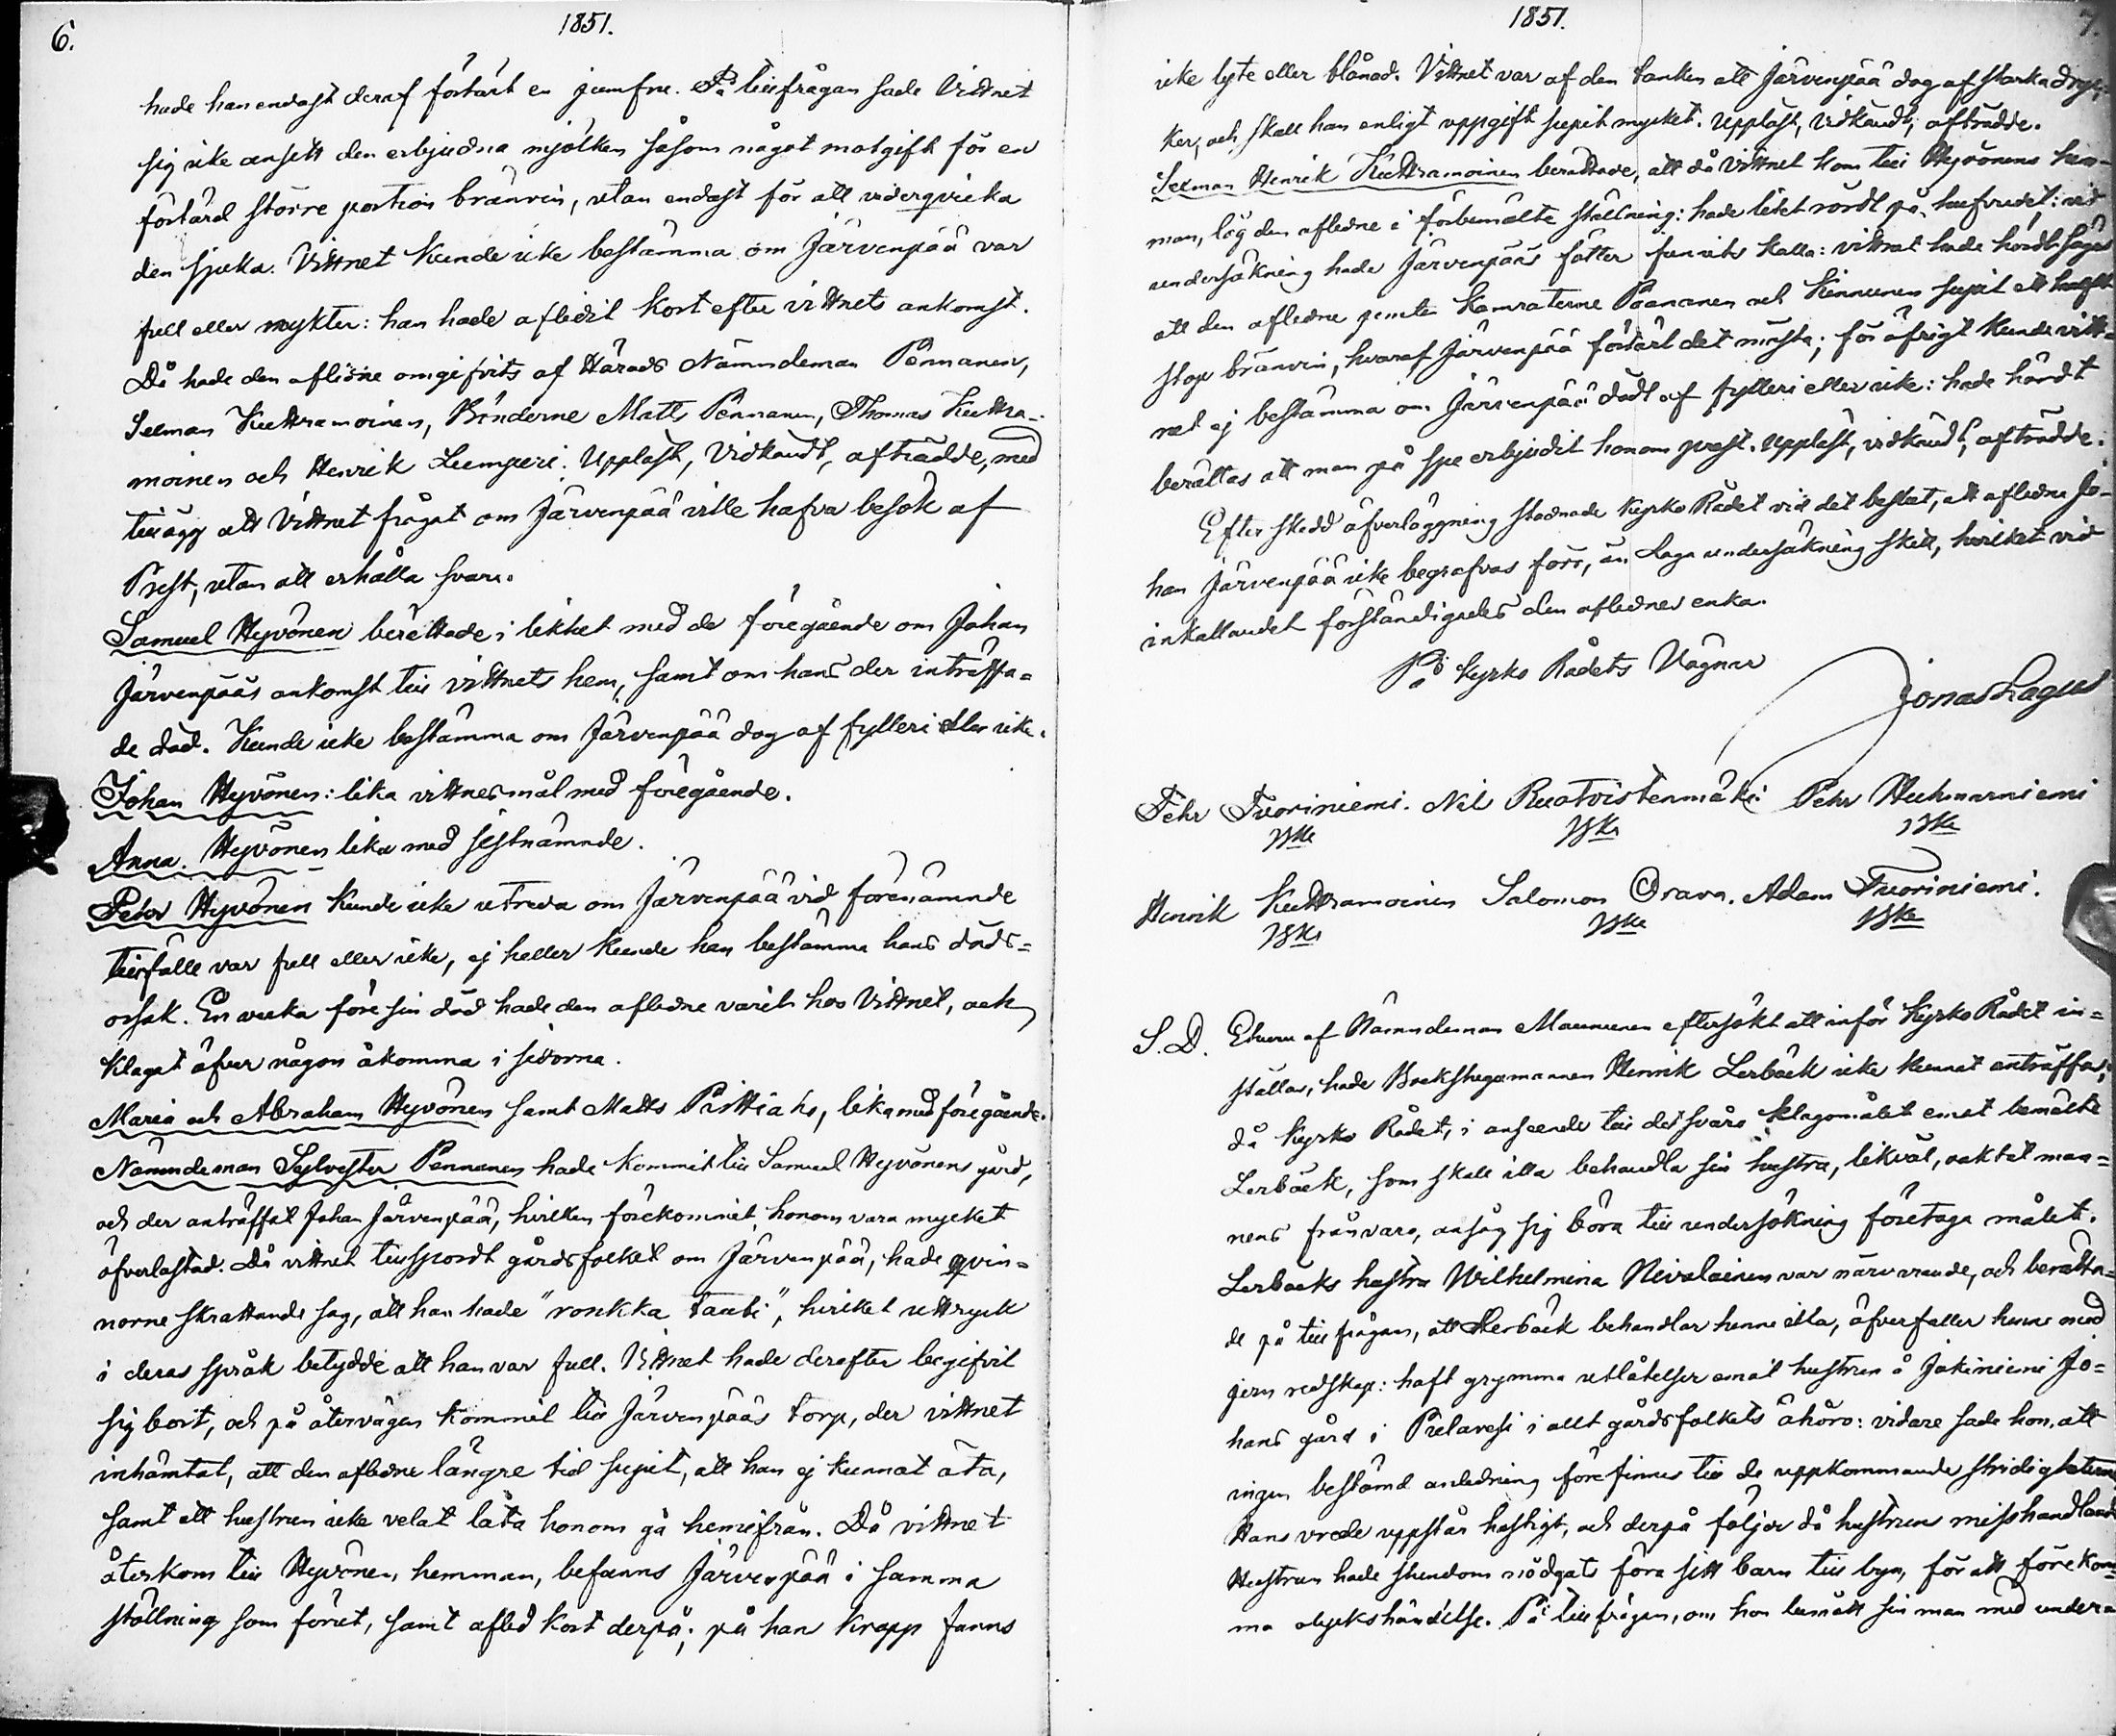 6.
1851.
hade han endast deraf förtärt en jumfru. På tillfrågan sade Vittnet
sig icke ansett den erbjudna mjölken såsom något motgift för en
förtärd större portion bränvin, utan endast för att vederqvicka
den sjuka. Vittnet kunde icke bestämma om Järvenpää var
full eller nykter: han hade aflidit kort efter vittnets ankomst.
Då hade den aflidne omgifvits af Härads Nämndeman Pennanen,
Sexman Kuttramoinen, Bönderne Matts Pennanen, Thomas Kuttra-
moinen och Henrik Lumperi. Uppläst, Vidkändt, afträdde, med
tillägg att Vittnet frågat om Järvenpää ville hafva besök af
Prest, utan att erhålla svar.
Samuel Hyvönen berättade i likhet med de föregående om Johan
Järvenpääs ankomst till vittnets hem, samt om hans der inträffa=
de död. Kunde icke bestämma om Järvenpää dog af fylleri eller icke.
Johan Hyvönen: lika vittnesmål med föregående.
Anna Hyvönen lika med sistnämnde.
Peter Hyvönen kunde icke utreda om Järvenpää vid förenämnde
tillfälle var full eller icke, ej heller kunde han bestämma hans döds=
orsak. En vecka före sin död hade den aflidne varit hos Vittnet, och
klagat öfver någon åkomma i sidorna.
Maria och Abraham Hyvönen samt Matts Piittiaho, lika med föregående.
Nämndeman Sylvester Pennanen hade kommit till Samuel Hyvönens gård,
och der anträffat Johan Järvenpää, hvilken förekommit honom vara mycket
öfverlastad. Då vittnet tillspordt gårdsfolket om Järvenpää, hade qvin=
norne skrattande sag, att han hade "ronkka tauti", hvilket uttryck
i deras språk betydde att han var full. Vittnet hade derefter begifvit
sig bort, och på återvägen kommit till Järvenpääs torp, der vittnet
inhämtat, att den aflidne längre tid supit, att han ej kunnat äta,
samt att hustrun icke velat låta honom gå hemifrån. Då vittnet
återkom till Hyvönen, hemman, befanns Järvenpää i samma
ställning som förut, samt afled kort derpå; på han kropp fanns
1851.
7.
icke lyte eller blånad. Vittnet var af den tanken att Järvenpää dog af starka dryc-
ker, och skall han enligt uppgift supit mycket. Uppläst, vidkändt, afträdde.
Sexman Henrik Kuttramoinen berättade, att då Vittnet kom till Hyvönens hem-
man, låg den aflidne i förbemälte ställning: hade litet rördt på hufvudet: vid
undersökning hade Järvenpääs fötter funnits kalla: vittnet hade hördt sägas
att den aflidne jemte Kamraterne Pöananen och Kinnunen supit ett halft
stop bränvin, hvaraf Järvenpää förtärt det mesta; för öfrigt kunde vitt=
net ej bestämma om Järvenpää dödt af fylleri eller icke: hade hördt
berättas att man på spe erbjudit honom prest. Uppläst, vidkändt, afträdde.
Efter skedd öfverläggning stadnade Kyrko Rådet vid det beslut, att aflidne Jo-
han Järvenpää icke begrafvas förr, än Laga undersökning skett, hvilket vid
inkallandet förständigades den aflidnes enka.
På Kyrko Rådets Vägnar
Jonas Lagus
Pehr Tuoriniemi. Nils Ruotoistenmäki Pehr Huhmarniemi
Henrik Kuttramoinen Salomon Orava. Adam Tuoriniemi.
S. D. Ehuru af Nämndeman Maununen eftersökt att inför Kyrko Rådet in=
ställas, hade Brukshagamannen Henrik Lerbäck icke kunnat anträffas,
då Kyrko Rådet, i anseende till det svåra klagomålet emot bemälte
Lerbäck, som skall illa behandla sin hustru, likväl, oaktat man=
nens frånvaro, ansåg sig böra till undersökning företaga målet.
Lerbäcks hustru Wilhelmina Nivalainen var närvarande, och berätta=
de på tillfrågan, att Lerbäck behandlar henne illa, öfverfaller henne med
jern redskap: haft grymma utlåtelser emot hustrun å Jokiniemi Jo=
hans gård i Pielavesi i allt gårdsfolkets åhöro: vidare sade hon, att
ingen bestämd anledning förefinnes till de uppkommande stridigheterne
Hans vrede uppstår hastigt, och derpå följer då hustruns misshandlande
Hustrun hade stundom nödgats föra sitt barn till byn, för att förekom=
ma olyckshändelse. På tillfrågan, om hon bemött sin man med under=